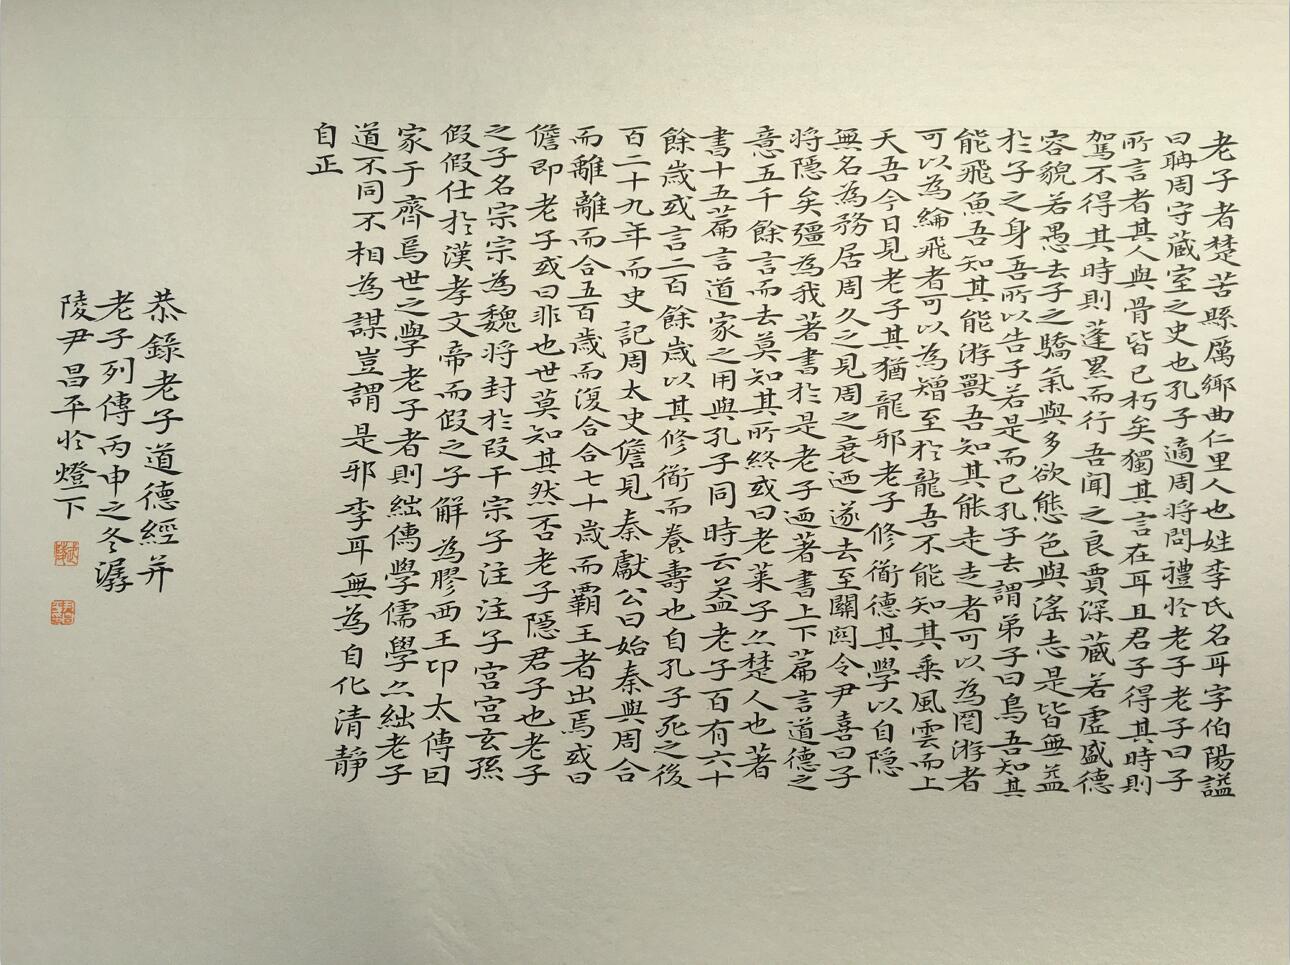 老子者楚苦縣厲鄉曲仁里人也姓李氏名耳字伯陽謚
曰聃周守藏室之史也孔子適周將問禮於老子老子曰子
所言者其人與骨皆已朽矣獨其言在耳且君子得其時則
駕不得其時則蓬累而行吾聞之良賈深藏若虛盛德
容貌若愚去子之驕氣與多欲態色與淫志是皆無益
於子之身吾所以告子若是而已孔子去謂弟子曰鳥吾知其
能飛魚吾知其能游獸吾知其能走走者可以為罔游者
可以為綸飛者可以為矰至於龍吾不能知其乘風雲而上
天吾今日見老子其猶龍邪老子修衜德其學以自隱
無名為務居周久之見周之衰迺遂去至關關令尹喜曰子
將隱矣彊為我著書於是老子迺著書上下萹言道德之
意五千餘言而去莫知其所終或曰老萊子亦楚人也著
書十五萹言道家之用與孔子同時云益老子百有六十
餘歲或言二百餘歲以其修衜而養壽也自孔子死之後
百二十九年而史記周太史儋見秦獻公曰始秦與周合
而離離而合五百歲而復合合七十歲而霸王者出焉或曰
儋即老子或曰非也世莫知其然否老子隱君子也老子
之子名宗宗為魏將封於段干宗子注注子宮宮玄孫
假假仕於漢孝文帝而假之子解為膠西王卬太傅曰
家于齊焉世之學老子者則絀儒學儒學亦絀老子
道不同不相為謀豈謂是邪李耳無為自化清靜
自正
恭錄老子道德經并
老子列傳丙申之冬潺
陵尹昌平於燈下